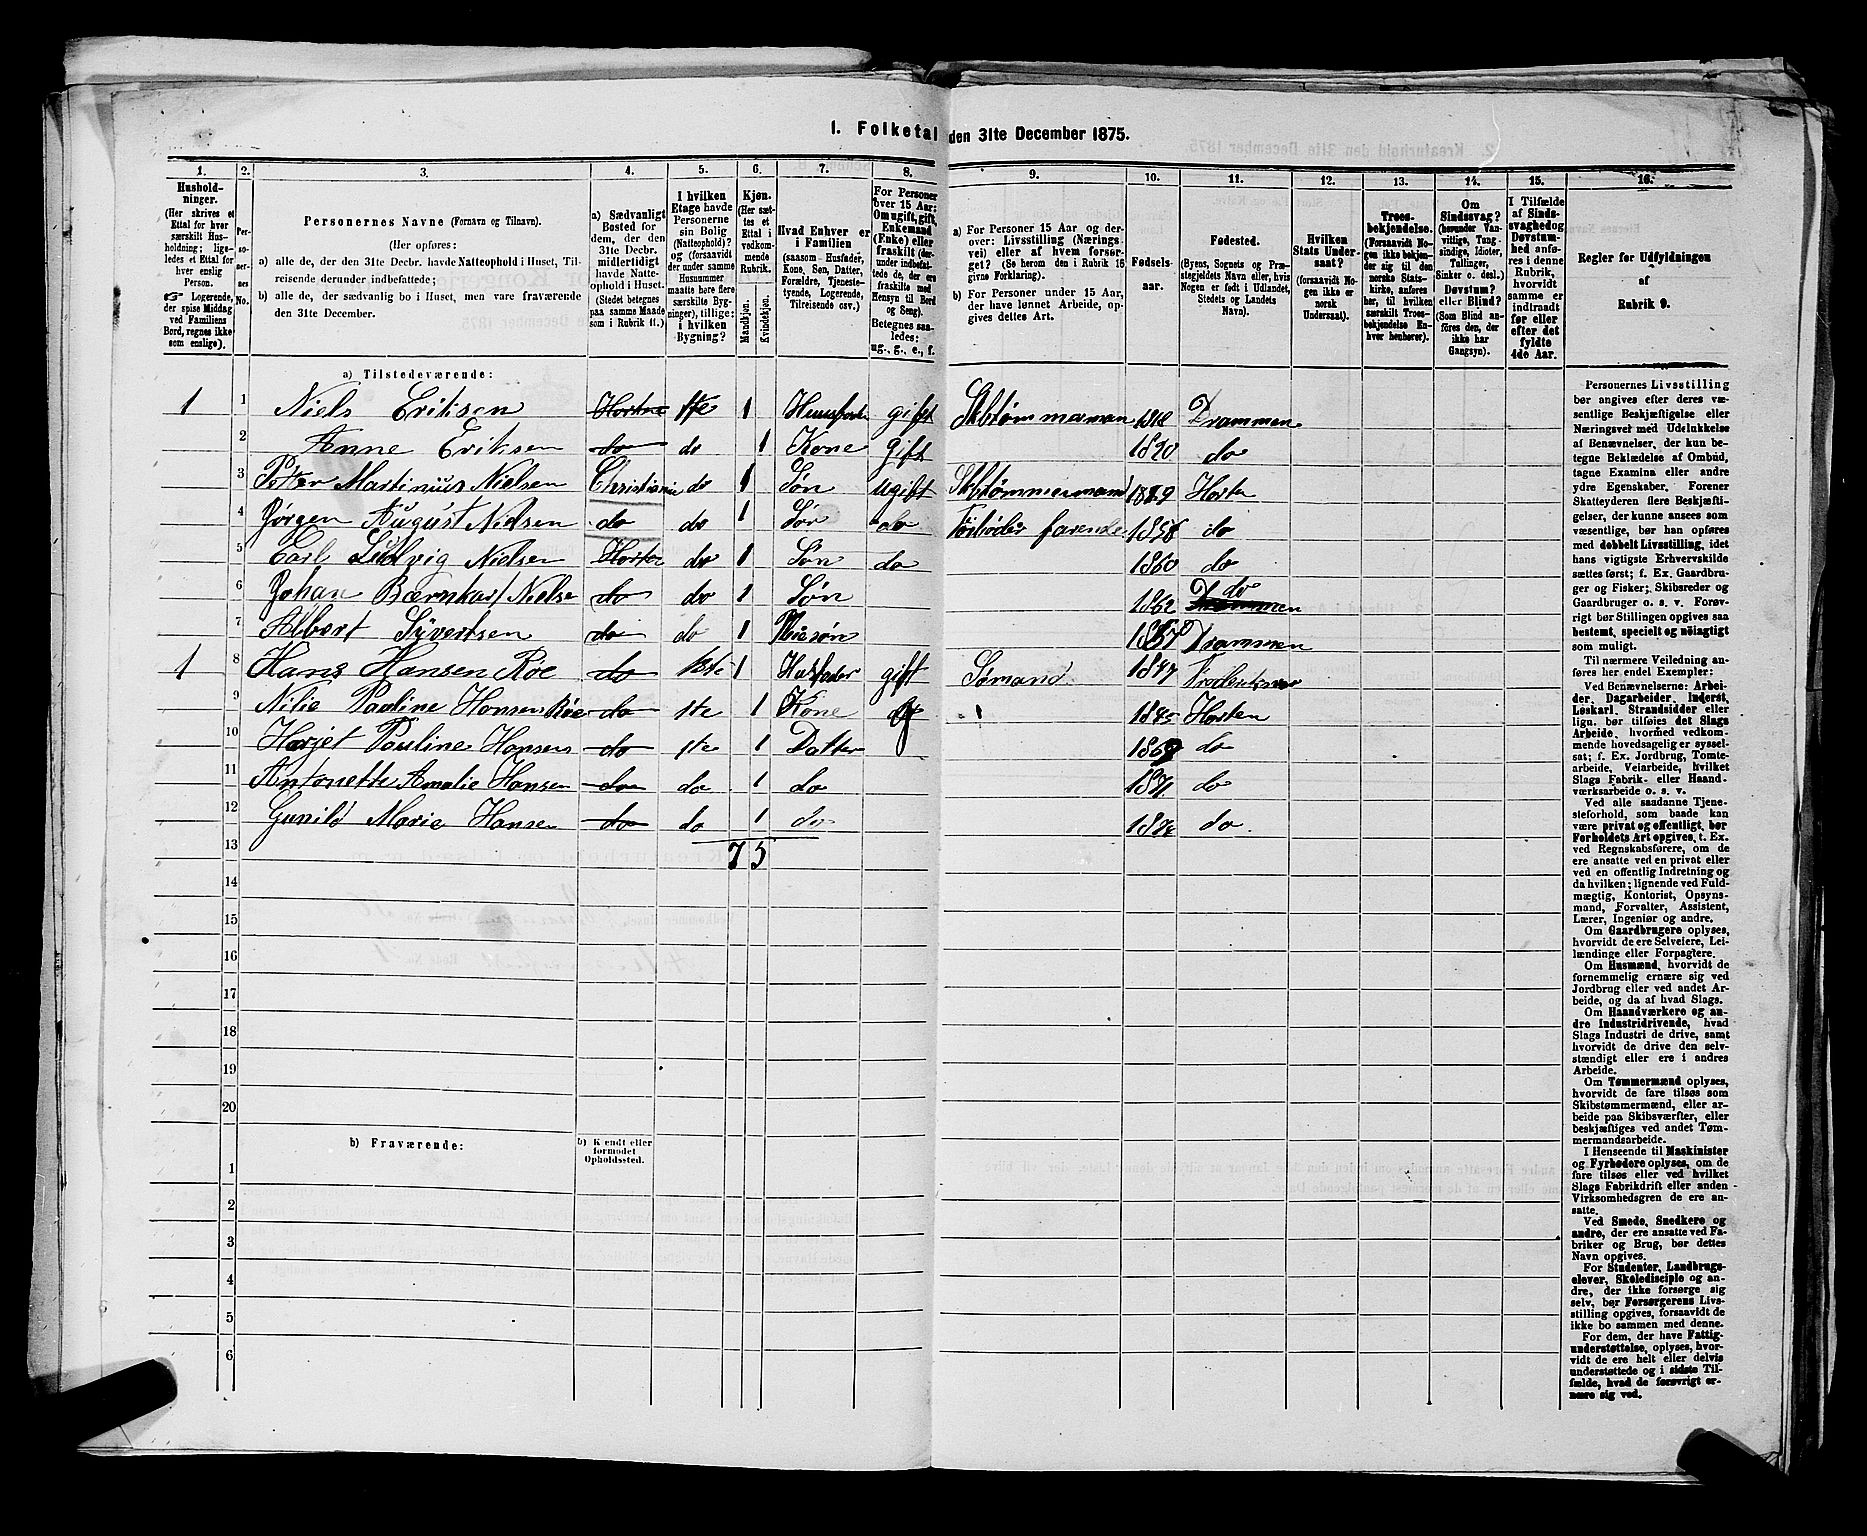 1. Folketal den 31te December 1875.
1. 2. 3. 4. 5. 6. 7. 8. 9. 10. 11. 12. 13. 14. 15. 16.
Hushold-
ninger.
(Her skrives et
Ettal for hver
særskilt Hus-
holdning; lige-
ledes et Ettal for
hver enslig
Person.
☞ Logerende,
der spise Middag
ved Familiens
Bord, regnes ikke
som enslige).
Per-
so-
ner-
nes
No.
Personernes Navne (Fornavn og Tilnavn).
(Her opføres:
a) alle de, der den 31te Decbr. havde Natteophold i Huset, Til-
reisende derunder indbefattede;
b) alle de, der sædvanlig bo i Huset, men vare fraværende
den 31te December.
a) Sædvanligt
Bosted for
dem, der den
31te Decbr.
midlertidigt
havde Natte-
ophold i Huset.
(Stedet betegnes
paa samme Maade
som i Rubrik 11.)
I hvilken
Etage havde
Personerne
sin Bolig
(Natteophold)?
og (forsaavidt
der under samme
Husnummer
maatte høre flere
særskilte Byg-
ninger), tillige:
i hvilken
Bygning?
Kjøn.
(Her sæt-
tes et
Ettal i
vedkom-
mende
Rubrik.
Mandkjøn.
Kvindekjøn.
Hvad Enhver er
i Familien
(saasom Husfader,
Kone, Søn, Datter,
Forældre, Tjeneste-
tyende, Logerende,
Tilreisende osv.)
For Personer
over 15 Aar:
Om ugift, gift,
Enkemand
(Enke) eller
fraskilt (der-
under indbefat-
tede de, der ere
fraskilte med
Hensyn til Bord
og Seng).
Betegnes saa-
ledes:
ug., g., e., f.
a) For Personer 15 Aar og der-
over: Livsstilling (Nærings-
vei) eller af hvem forsør-
get? (Se herom den i Rubrik 16
givne Forklaring).
b) For Personer under 15 Aar,
der have lønnet Arbeide, op-
gives dettes Art.
Fødsels-
aar.
Fødested.
(Byens, Sognets og Præ-
stegjeldets Navn eller, hvis
Nogen er født i Udlandet,
Stedets og Landets
Navn).
Hvilken
Stats Under-
saat?
(forsaavidt No-
gen ikke er
norsk
Undersaat).
Troes-
bekjendelse.
(Forsaavidt No-
gen ikke bekjen-
der sig til den
norske Stats-
kirke, anføres
her, til hvilken
særskilt Troes-
bekjendelse En-
hver henhører).
Om
Sindssvag?
(herunder Van-
vittige, Tung-
sindige, Idioter,
Tullinger,
Sinker o. desl.)
Døvstum?
eller Blind?
(Som Blind an-
føres den, der
ikke har
Gangsyn).
I Tilfælde
af Sinds-
svaghed og
Døvstum-
hed anfø-
res i denne
Rubrik,
hvorvidt
samme er
indtraadt
før eller
efter det
fyldte
4de Aar.
Regler for Udfyldningen
af
Rubrik 9.
a) Tilstedeværende:
1 1 Niels Eriksen Horten 1ste 1 gift 1818 Drammen
2 Anne Eriksen do do 1 Kone gift 1820 do
3 Petter Martinius Nielsen Christiania do 1 Søn ugift Skbtømmermand 1849 Horten
4 Jørgen August Nielsen do do 1 Søn do farende 1858 do
5 Carl Ludvig Nielsen Horten do 1 Søn do 1860 do
6 Johan Nielse do do 1 Søn 1862 Drammen do
7 Albert Syvertsen do do 1 1867 Drammen
1 8 Hans Hansen Røe do 1ste 1 Husfader gift Sømand 1847
9 Pauline Hansen Røe do 1ste 1 Kone g 1 1845 Horten
10 Pauline Hansen do 1ste 1 Datter 1869 do
11 Antonette Amalie Hansen do do 1 do 1871 do
12 Gunild Marie Hansen do do 1 do do
13 7 5
14
15
16
17
18
19
20
b) Fraværende:
b) Kjendt eller
formodet
Opholdssted.
1
2
3
4
5
6
Personernes Livsstilling
bør angives efter deres væ-
sentlige Beskjæftigelse eller
Næringsvei med Udelukkelse
af Benævnelser, der kun be-
tegne Beklædelse af Ombud,
tagne Examina eller andre
ydre Egenskaber. Forener
Skatteyderen flere Beskjæfti-
gelser, der kunne ansees som
væsentlige, bør han opføres
med dobbelt Livsstilling, idet
hans vigtigste Erhvervskilde
sættes først; f. Ex. Gaardbru-
ger og Fisker; Skibsreder og
Gaardbruger o. s. v. Forøv-
rigt bør Stillingen opgives saa
bestemt, specielt og nøiagtigt
som muligt.
Til nærmere Veiledning an-
føres her endel Exempler:
Ved Benævnelserne: Arbei-
der, Dagarbeider, Inderst,
Løskarl, Strandsidder eller
lign. bør tilføies det Slags
Arbeide, hvormed vedkom-
mende hovedsagelig er syssel-
sat; f. Ex. Jordbrug, Tomte-
arbeide, Veiarbeide, hvilket
Slags Fabrik- eller Haand-
værksarbeide o. s. v.
Ved alle saadanne Tjene-
steforhold, som baade kan
være privat og offentligt, bør
Forholdets Art opgives, t. Ex.
ved Regnskabsførere, om de
ere ansatte ved en privat eller
ved en offentlig Indretning og
da hvilken; lignende ved Fuld-
mægtig, Kontorist, Opsyns-
mand, Forvalter, Assistent,
Lærer, Ingeniør og andre.
Om Gaardbrugere oplyses,
hvorvidt de ere Selveiere, Lei-
lændinge eller Forpagtere.
Om Husmænd, hvorvidt de
fornemmelig ernære sig ved
Jordbrug eller ved andet Ar-
beide, og da af hvad Slags.
Om Haandværkere og an-
dre Industridrivende, hvad
Slags Industri de drive, samt
hvorvidt de drive den selv-
stændigt eller ere i andres
Arbeide.
Om Tømmermænd oplyses,
hvorvidt de fare tilsøs som
Skibstømmermænd, eller ar-
beide paa Skibsværfter, eller
beskjæftiges ved andet Tøm-
mermandsarbeide.
I Henseende til Maskinister
og Fyrbødere oplyses, om de
fare tilsøs eller ved hvilket
Slags Fabrikdrift eller anden
Virksomhedsgren de ere an-
satte.
Ved Smede, Snedkere og
andre, der ere ansatte ved Fa-
briker og Brug, bør dettes
Navn opgives.
For Studenter, Landbrugs-
elever, Skoledisciple og an-
dre, der ikke forsørge sig
selv, bør Forsørgerens Livs-
stilling opgives, forsaavidt de
ikke bo sammen med denne.
For dem, der have Fattig-
understøttelse, oplyses, hvor-
vidt de ere helt eller delvis
understøttede og i sidste Til-
fælde, hvad de forøvrigt er-
nære sig ved.